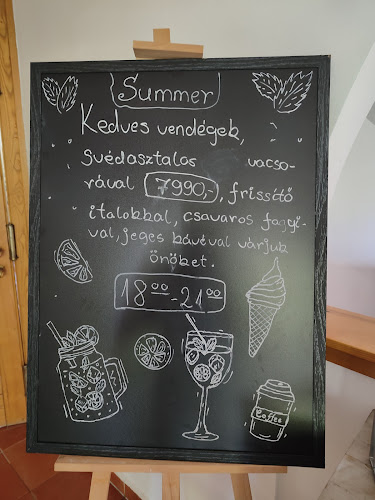 Summer
Kedves vendégek,
svédasztalos vacso-
rával 7990,-, frissítő
italokkal, csavaros fagyi-
val, jeges kávéval várjuk
önöket.
18⁰⁰-21⁰⁰
Coffee